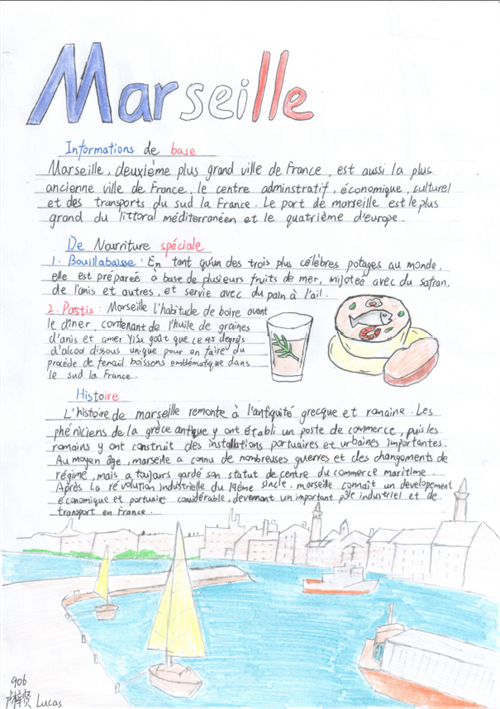 Marseille
Informations de base
Marseille, deuxième plus grand ville de France, est aussi la plus
ancienne ville de France, le centre adminstratif, économique, culturel
et des transports du sud la France. Le port de marseille est le plus
grand du littoral méditerranéen et le quatrième d'europe.
De Nourriture spéciale
1. Bouillabaisse: En tant qu'un des trois plus célèbres potages au monde,
elle est préparée à base de plusieurs fruits de mer, mijotée avec du safran,
de l'anis et autres, et servie avec du pain à l'ail.
2. Pastis: Marseille l'habitude de boire avant
le dîner, contenant de l'huile de graines
d'anis et amer Yisu goût que ce 45 degrés
d'alcool dissous unique pour en faire du
procède de fenouil boissons emblématique dans
le sud la France.
Histoire
L'histoire de marseille remonte à l'antiquité grecque et romaine. Les
phéniciens de la grèce antique y ont établi un poste de commerce, puis les
romains y ont construit des installations portuaires et urbaines importantes.
Au moyen âge, marseille a connu de nombreuses guerres et des changements de
régime, mais a toujours gardé son statut de centre du commerce maritime.
Après la révolution industrielle du 19ème siècle, marseille connaît un developement
économique et portuaire considérable, devenant un important pôle industriel et de
transport en France.
906
Lucas